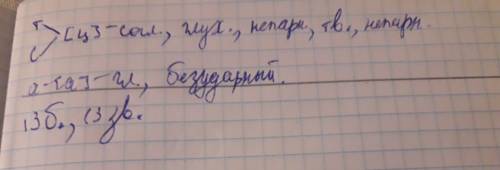 т
с > [ц] - согл., глух., непарн., тв., непарн.
а - [а] - гл., безударный.
13 б., 13 зв.